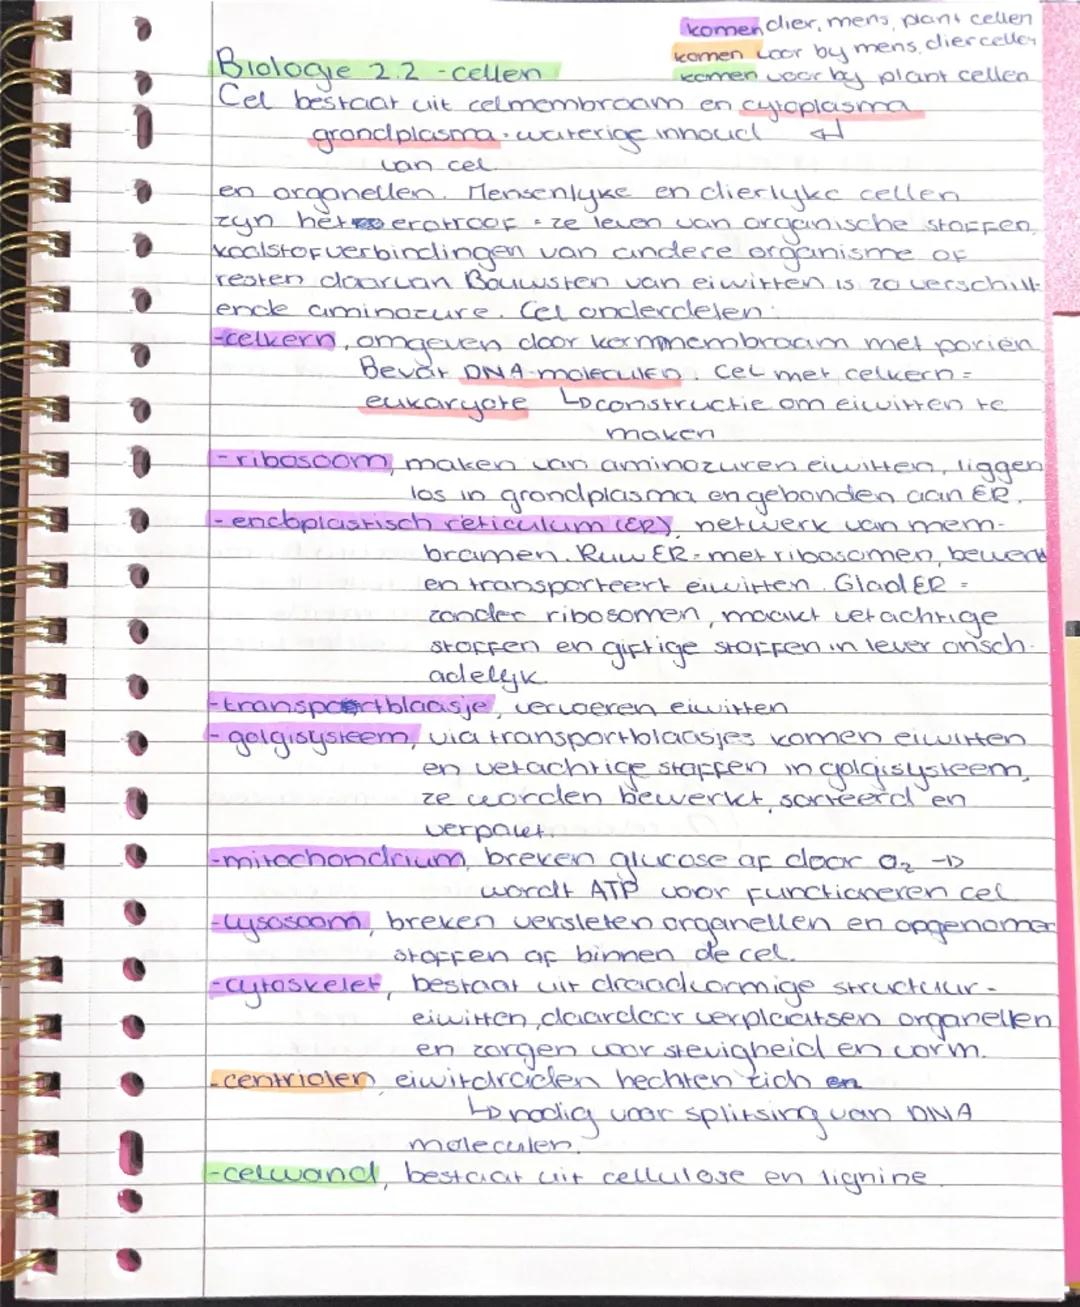 komen dier, mens, plant cellen
komen voor by mens, dier cellen
komen voor by plant cellen
Biologie 2.2 - cellen
Cel bestaat uit celmembraam en cytoplasma
grondplasma · waterige inhoud ↵
van cel.
en organellen. Mensenlyke en dierlyke cellen
zyn heterotroof = ze leven van organische stoffen,
koolstofverbindingen van andere organisme of
resten daarvan Bouwsten van eiwitten is 20 verschill-
ende aminozure. Cel onderdelen:
- celkern, omgeven door kernmembraam met poriën
Bevat DNA-moleculen. Cel met celkern =
eukaryote ↳ constructie om eiwitten te
maken
- ribosoom, maken van aminozuren eiwitten, liggen
los in grondplasma en gebonden aan ER.
- endoplastisch reticulum (ER), netwerk van mem-
bramen. Ruw ER = met ribosomen, bewerkt
en transporteert eiwitten. Glad ER =
zonder ribosomen, maakt vetachtige
stoffen en giftige stoffen in lever onsch-
adelyk.
- transportblaasje, vervoeren eiwitten
- golgisysteem, via transportblaasjes komen eiwitten
en vetachtige stoffen in golgisysteem,
ze worden bewerkt, sorteerd en
verpakt.
- mitochondrium, breken glucose af door O₂ →
wordt ATP voor functioneren cel
- lysosoom, breken versleten organellen en opgenomen
stoffen af binnen de cel.
- cytoskelet, bestaat uit draadvormige structuur-
eiwitten, daardoor verplaatsen organellen
en zorgen voor stevigheid en vorm.
- centriolen, eiwitdraden hechten zich en
↳ nodig voor splitsing van DNA
moleculen.
- celwand, bestaat uit cellulose en lignine.